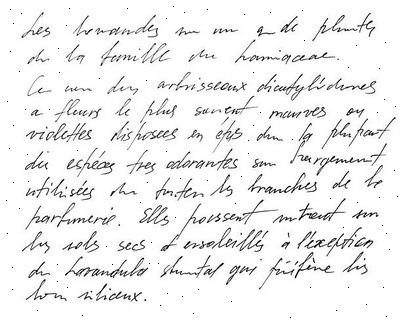 Les lavandes sont un genre de plantes
de la famille des Lamiaceae.
Ce sont des arbrisseaux dicotylédones
a fleurs le plus souvent mauves ou
violettes disposées en épis dans la plupart
des espèces tres odorantes sont largement
utilisées dans toutes les branches de la
parfumerie. Elles poussent surtout sur
les sols secs et ensoleillés à l'exception
de Lavandula stoechas qui préfère les
sols siliceux.